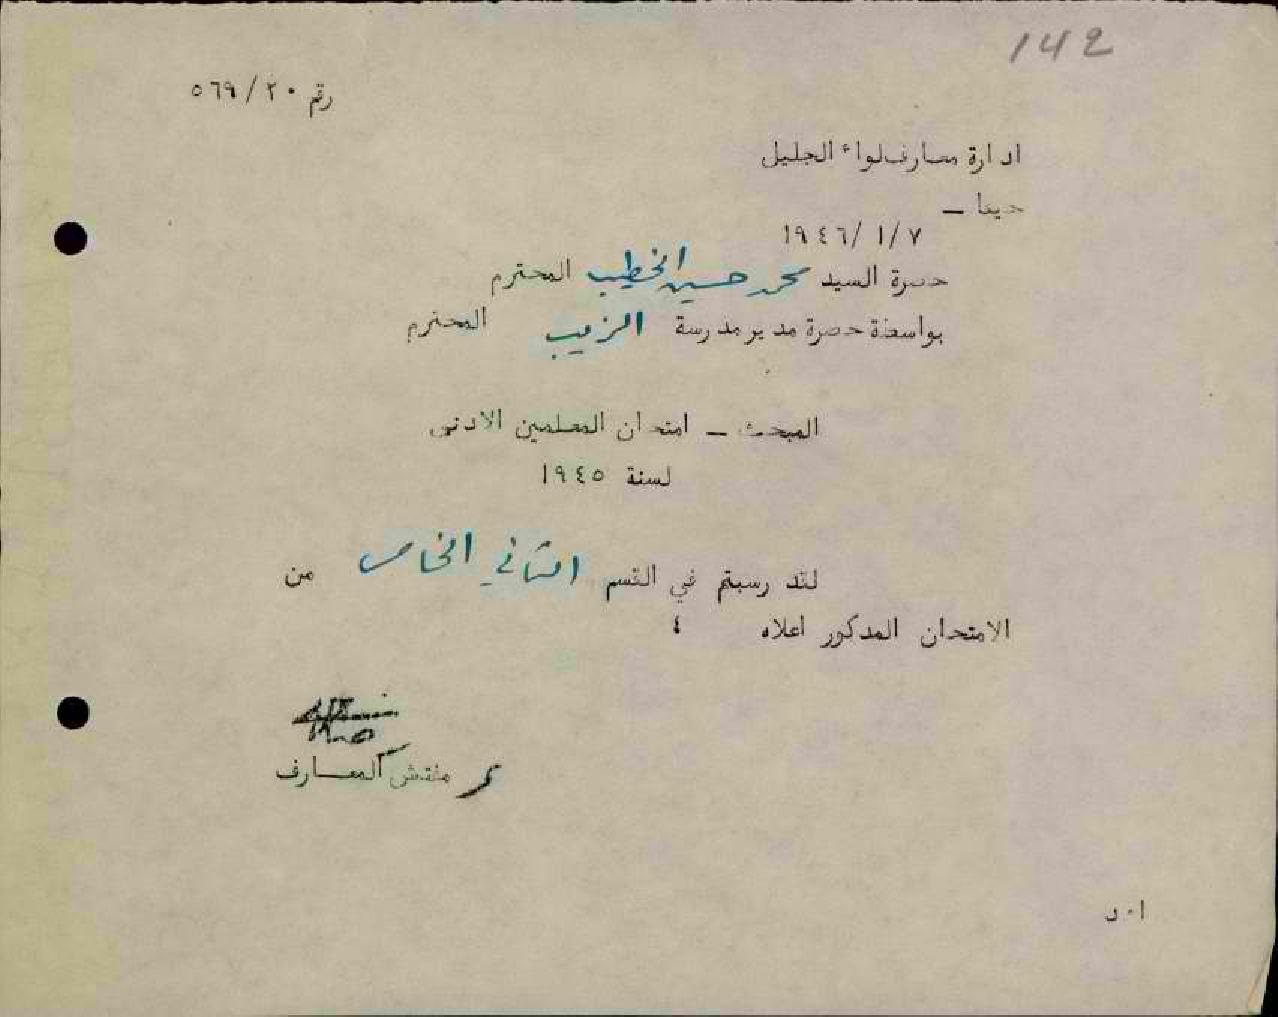 142
رقم ٢٠/٥٦٩
ادارة معارف لواء الجليل
حيفا –
١٩٤٦/١/٧
حضرة السيد محمد حسين الخطيب المحترم
بواسطة حضرة مدير مدرسة الزيب المحترم
المبحث – امتحان المعلمين الادنى
لسنة ١٩٤٥
لقد رسبتم في القسم الثاني الخاص من
الامتحان المذكور اعلاه ؛
مفتش المعارف
ا٠د